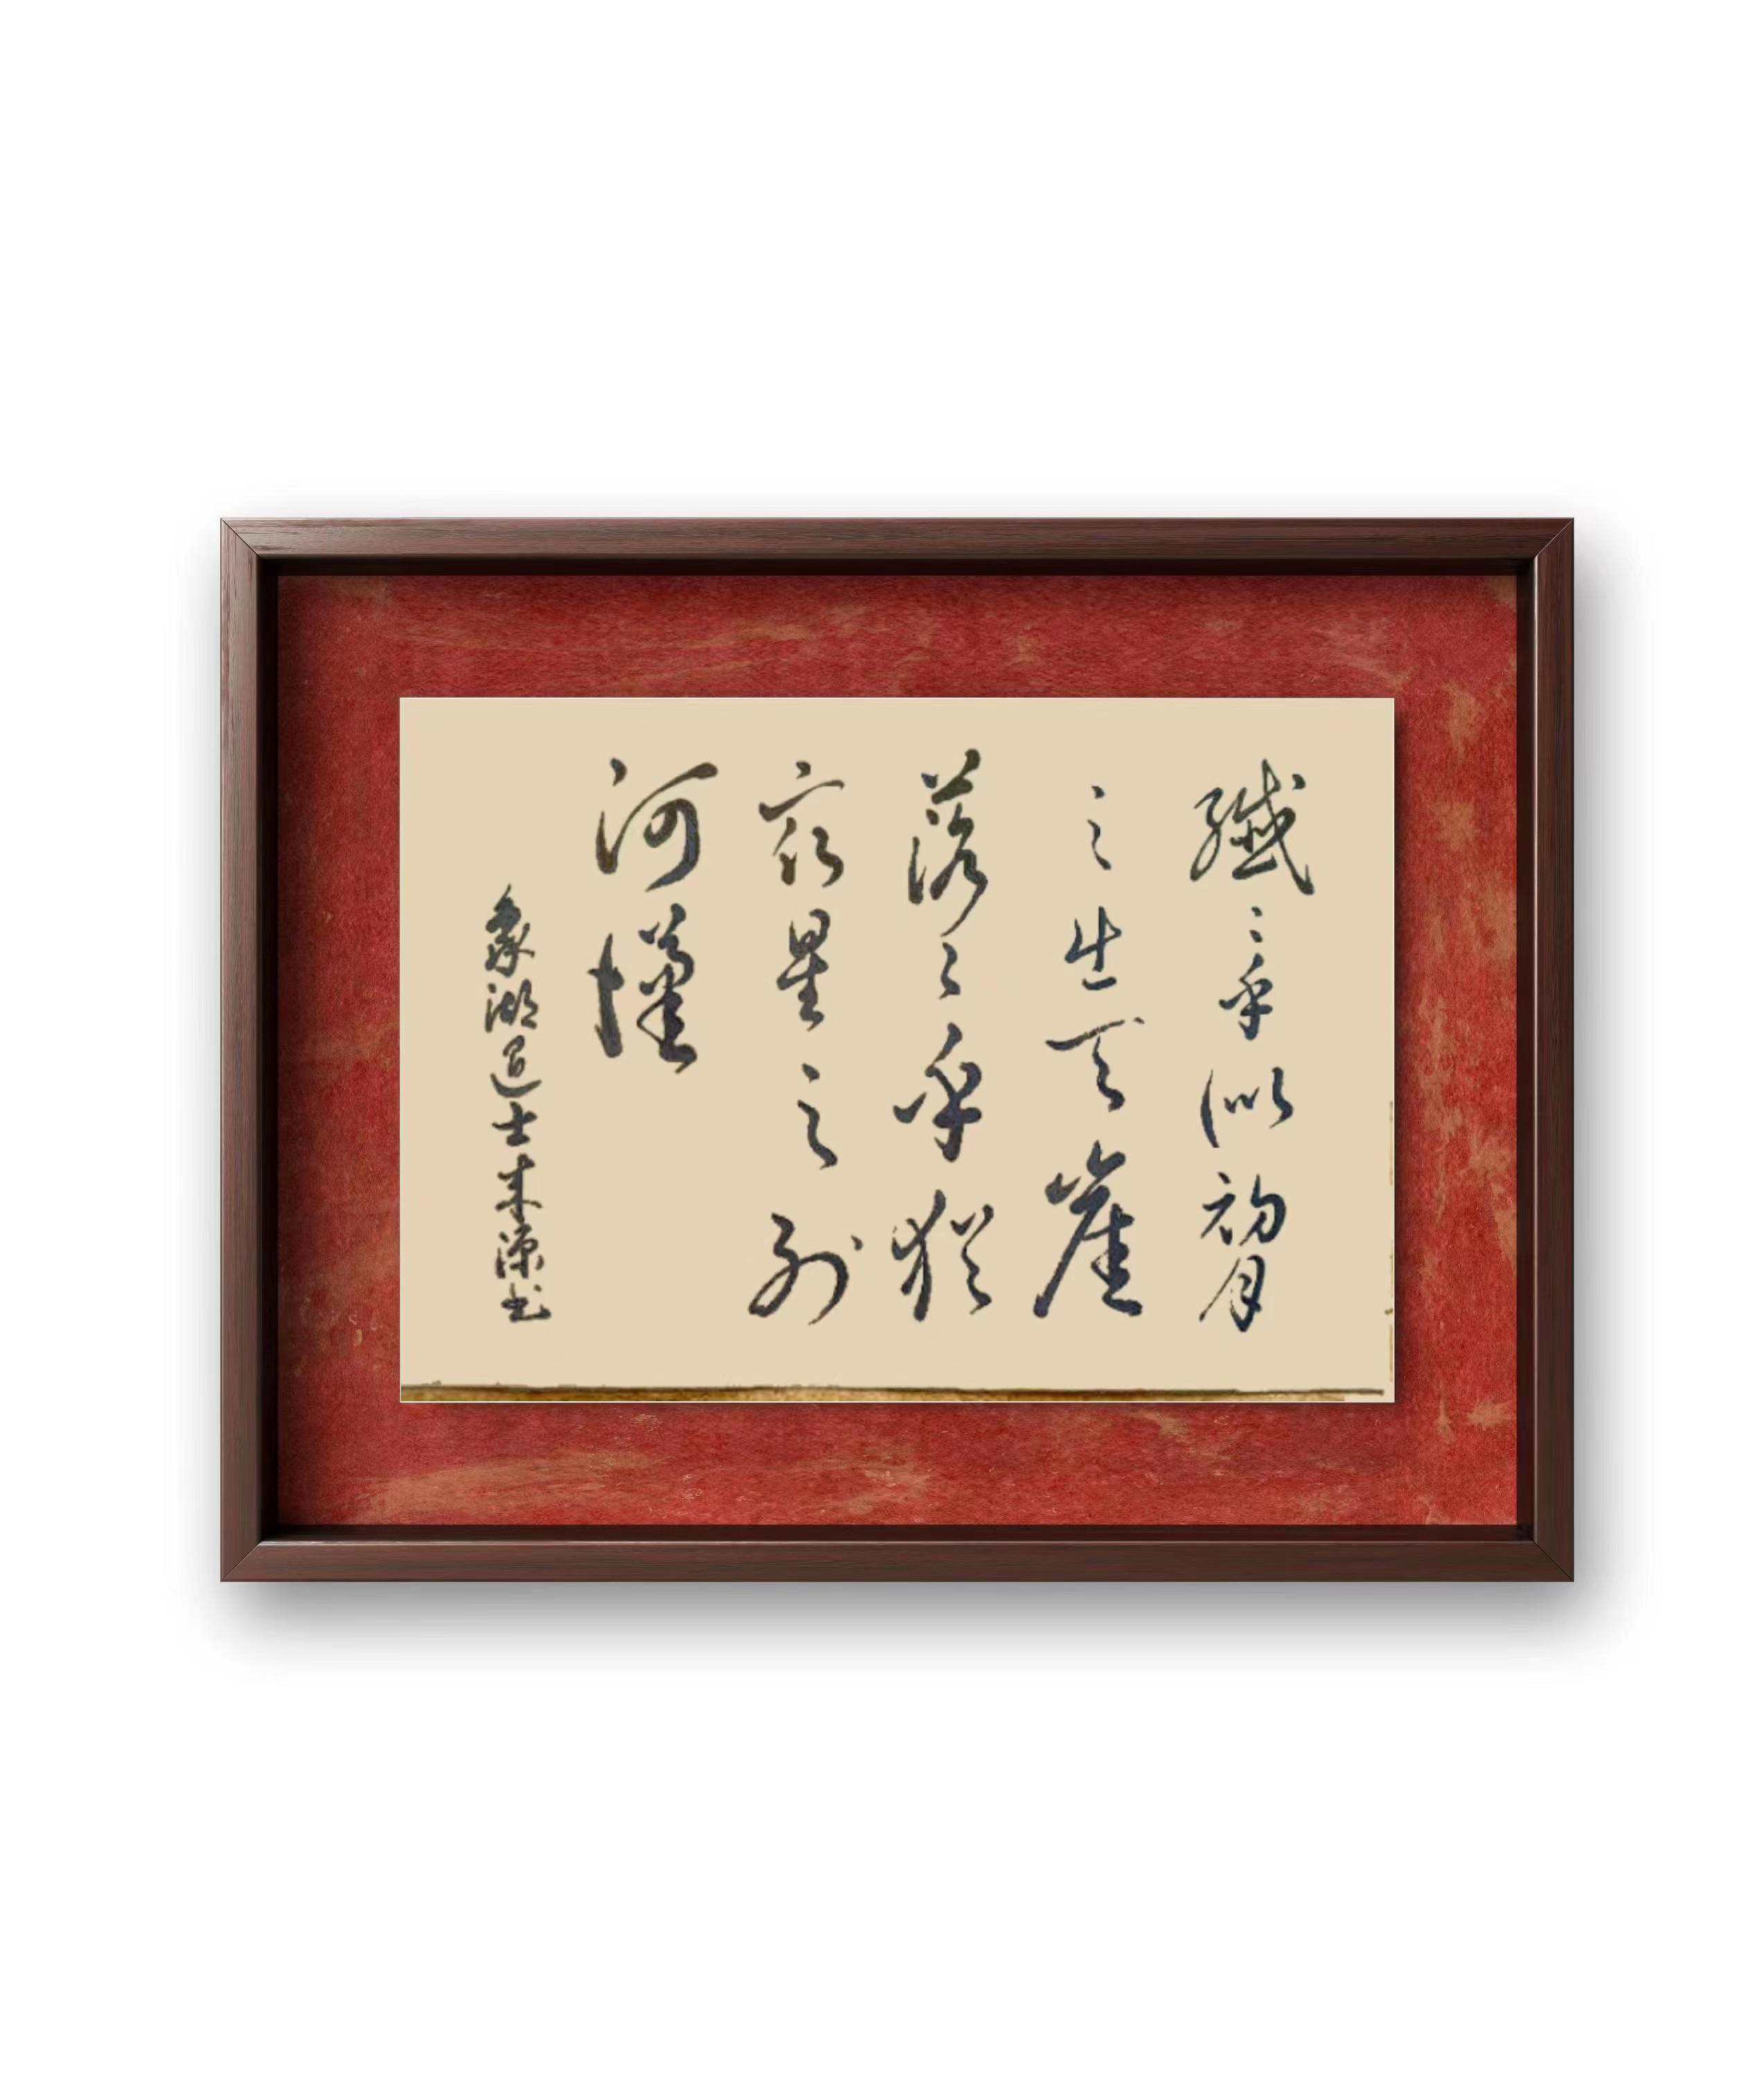 纖〻乎似初月
之出天崖
落〻乎猶
衆星之列
河漢
象湖士书